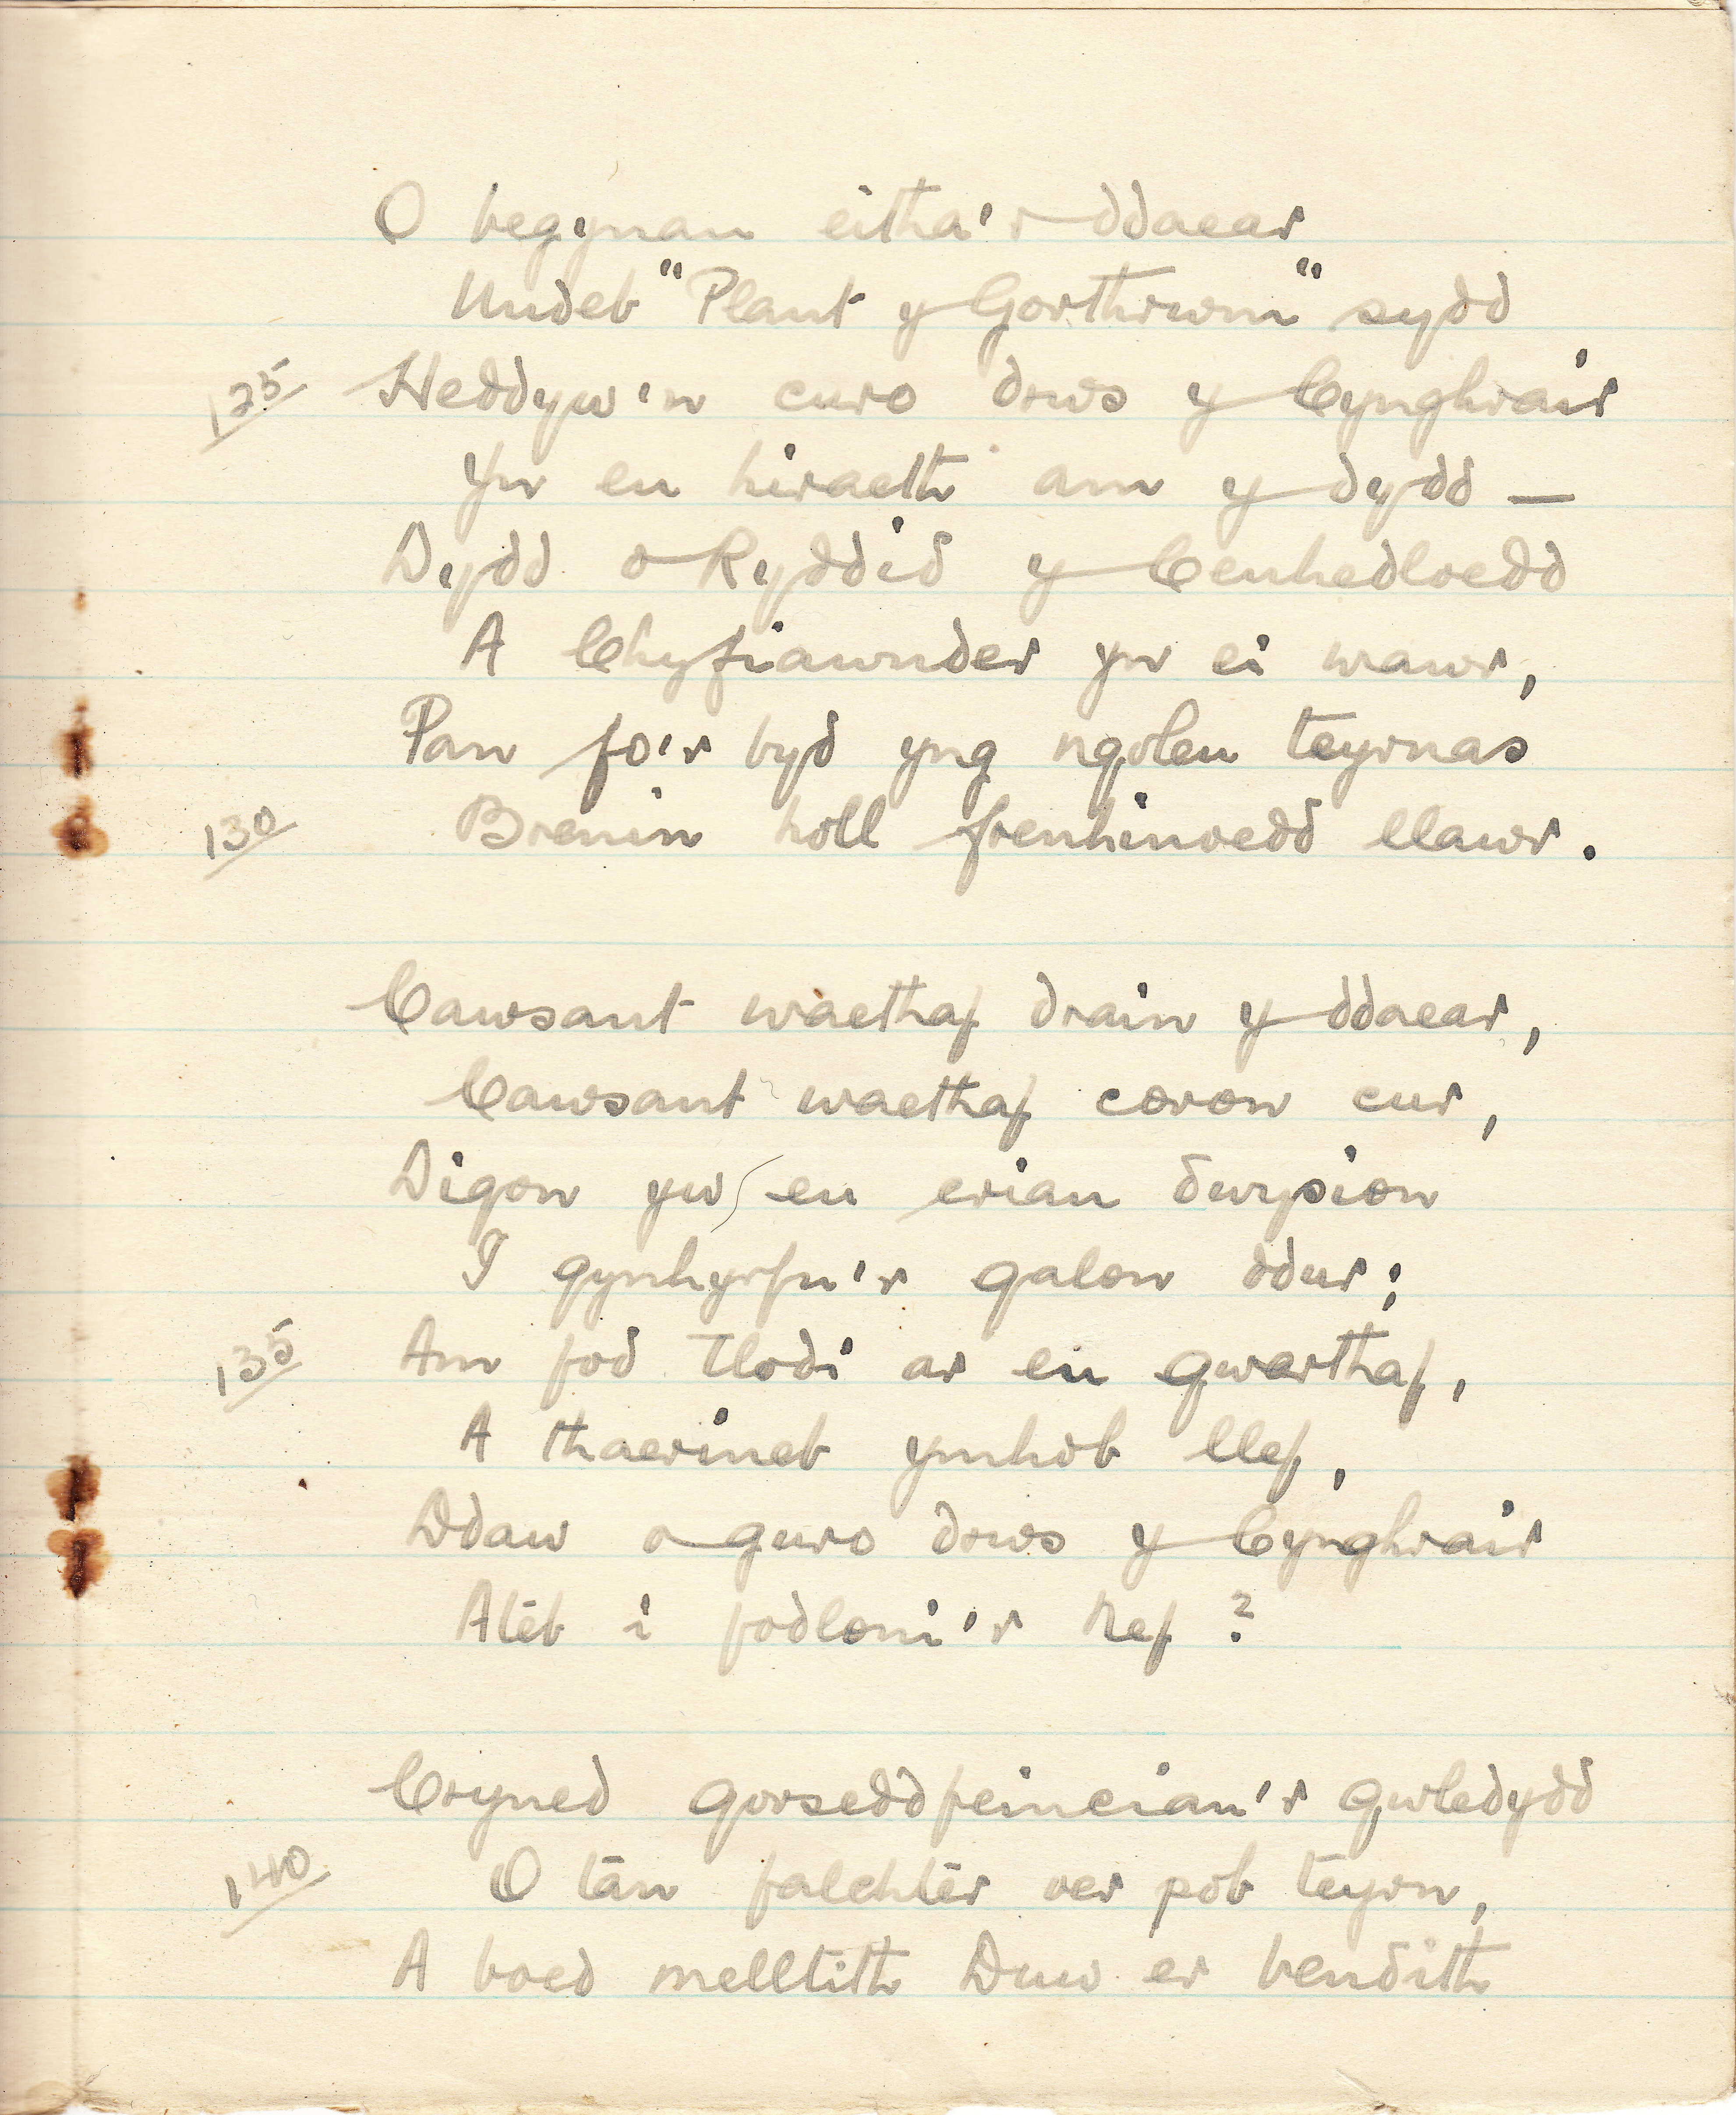 O begynau eitha'r ddaear
Undeb "Plant y Gorthrwm" sydd
125 Heddyw'n curo drws y Cynghrair
Yn eu hiraeth am y dydd —
Dydd o Ryddid y Cenhedloedd
A Chyfiawnder yn ei wawr,
Pan fo'r byd yng ngoleu teyrnas
130 Brenin holl frenhinoedd llawr.
Cawsant waethaf drain y ddaear,
Cawsant waethaf coron cur,
Digon yw eu criau dwysion
I gynhyrfu'r galon ddur;
135 Am fod tlodi ar eu gwarthaf,
A thaerineb ymhob llef,
Ddaw o guro drws y Cynghrair
Ateb i fodloni'r Nef?
Cryned gorseddfeinciau'r gwledydd
140 O tan falchter oer pob teyrn,
A boed melltith Duw er bendith